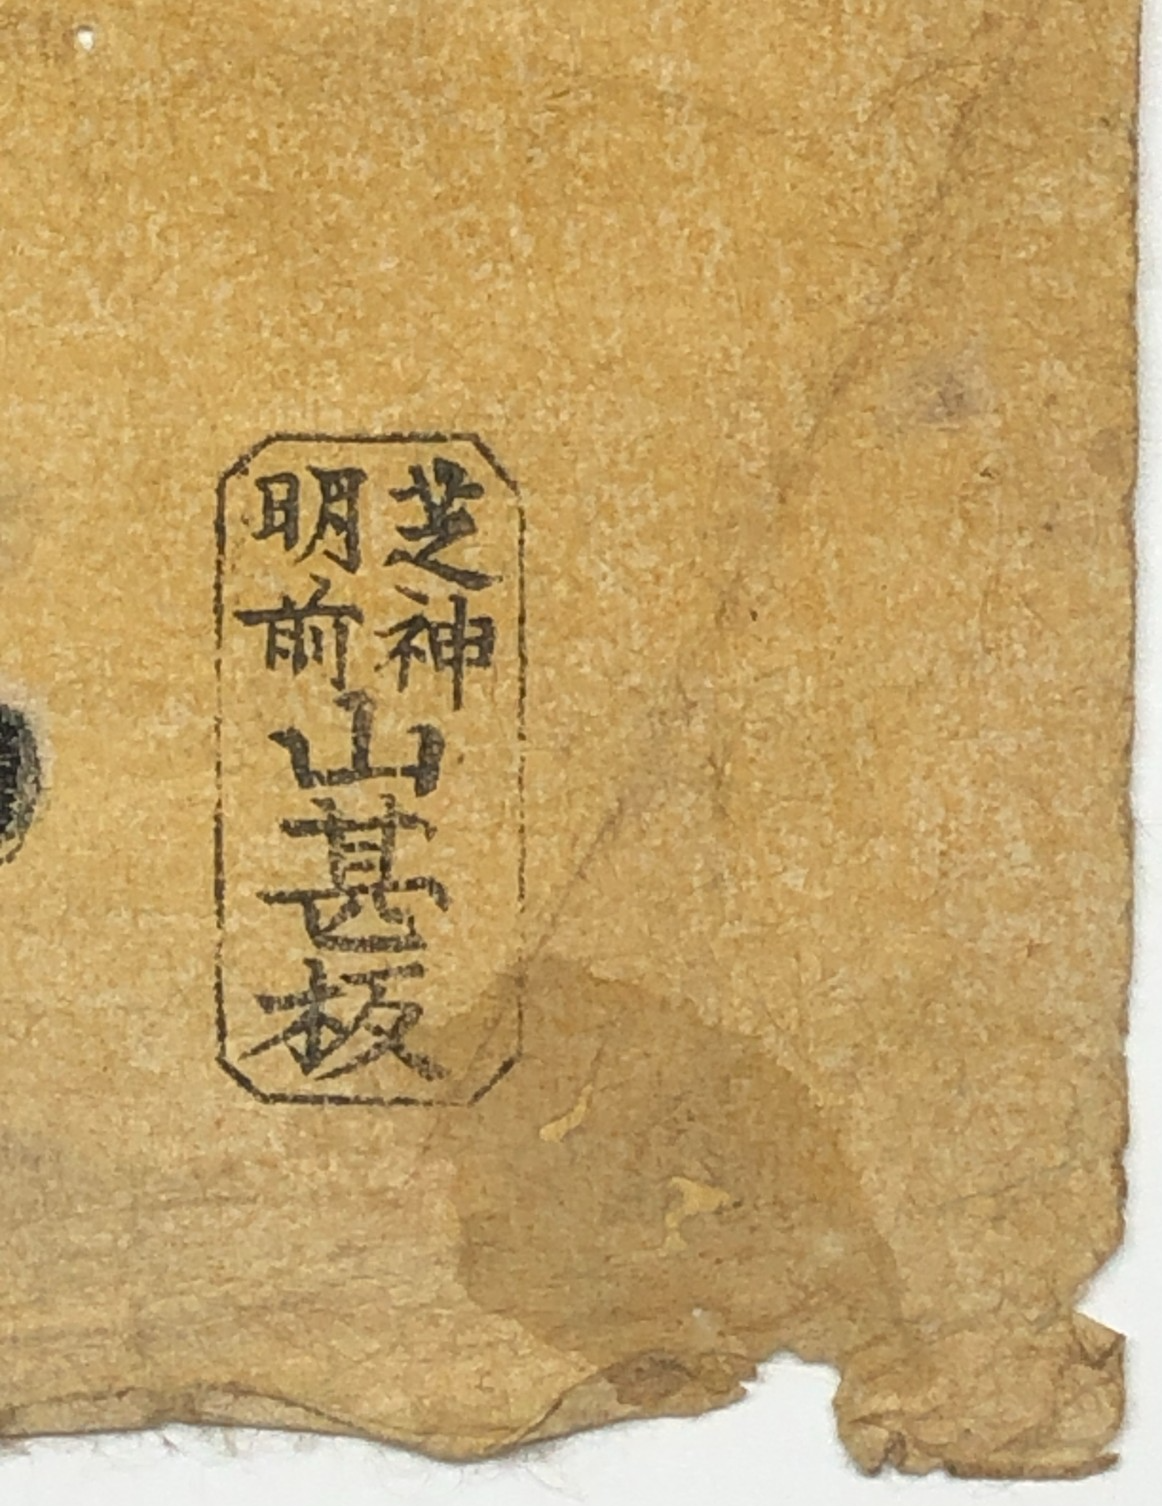 芝神
明前
山甚板